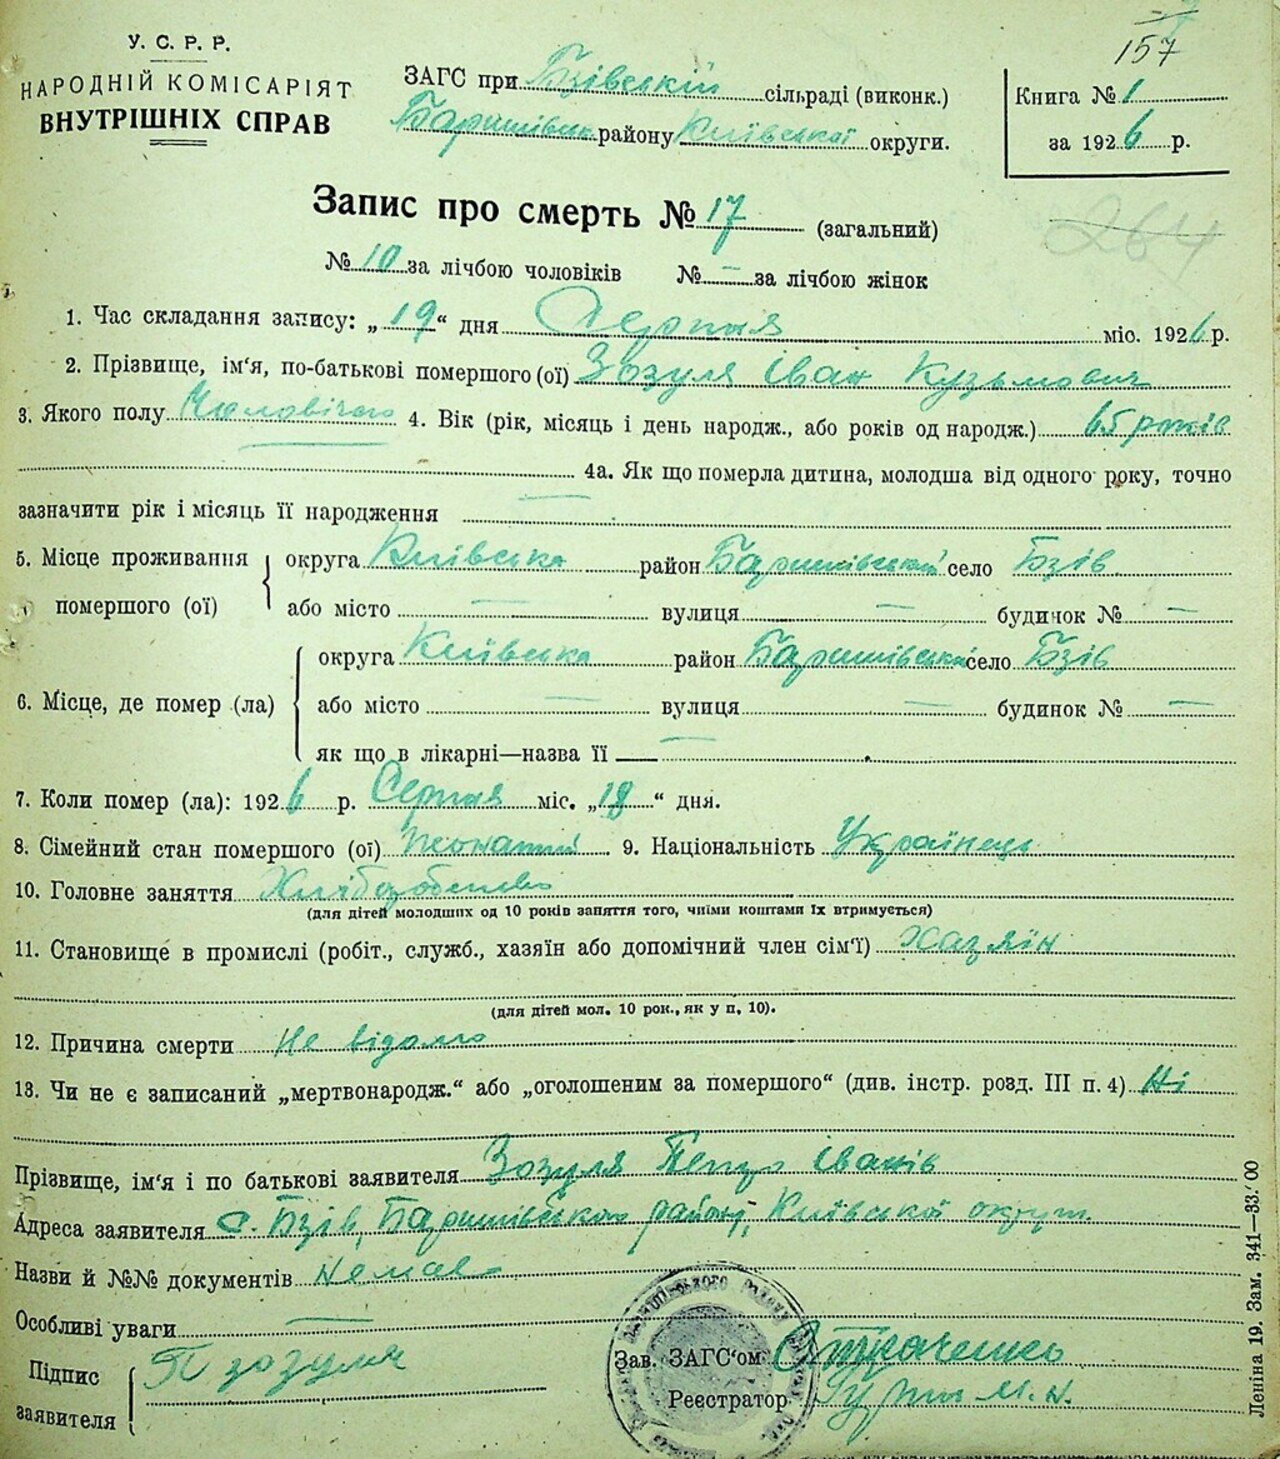 157
У. С. Р. Р.
НАРОДНІЙ КОМІСАРІЯТ
ВНУТРІШНІХ СПРАВ
ЗАГС при Бзівській сільраді (виконк.)
Баришівськ району Київської округи.
Книга № 1
за 1926 р.
Запис про смерть № 17 (загальний)
264
№ 10 за лічбою чоловіків № — за лічбою жінок
1. Час складання запису: „19“ дня Серпня міс. 1926 р.
2. Прізвище, ім‘я, по-батькові помершого (ої) Зозуля Іван Кузьмович
3. Якого полу Чоловічого 4. Вік (рік, місяць і день народж., або років од народж.) 65 років
4а. Як що померла дитина, молодша від одного року, точно
зазначити рік і місяць її народження —
5. Місце проживання помершого (ої) округа Київська район Баришівський село Бзів
або місто — вулиця — будинок № —
6. Місце, де помер (ла) округа Київська район Баришівський село Бзів
або місто — вулиця — будинок № —
як що в лікарні—назва її —
7. Коли помер (ла): 1926 р. Серпня міс. „18“ дня.
8. Сімейний стан помершого (ої) Жонатий 9. Національність Українець
10. Головне заняття Хліборобство
(для дітей молодших од 10 років заняття того, чиїми коштами їх втримується)
11. Становище в промислі (робіт., служб., хазяїн або допомічний член сім‘ї) Хазяїн
(для дітей мол. 10 рок., як у п. 10).
12. Причина смерти Не відомо
13. Чи не є записаний „мертвонародж.“ або „оголошеним за помершого“ (див. інстр. розд. III п. 4) Ні
Прізвище, ім‘я і по батькові заявителя Зозуля Петро Іванів
Адреса заявителя с. Бзів, Баришівського району, Київської округи.
Назви й №№ документів Немає
Особливі уваги —
Підпис заявителя П Зозуля
Зав. ЗАГС‘ом Ткаченко
Реєстратор М. Н.
Леніна 19. Зам. 341—33.‘00